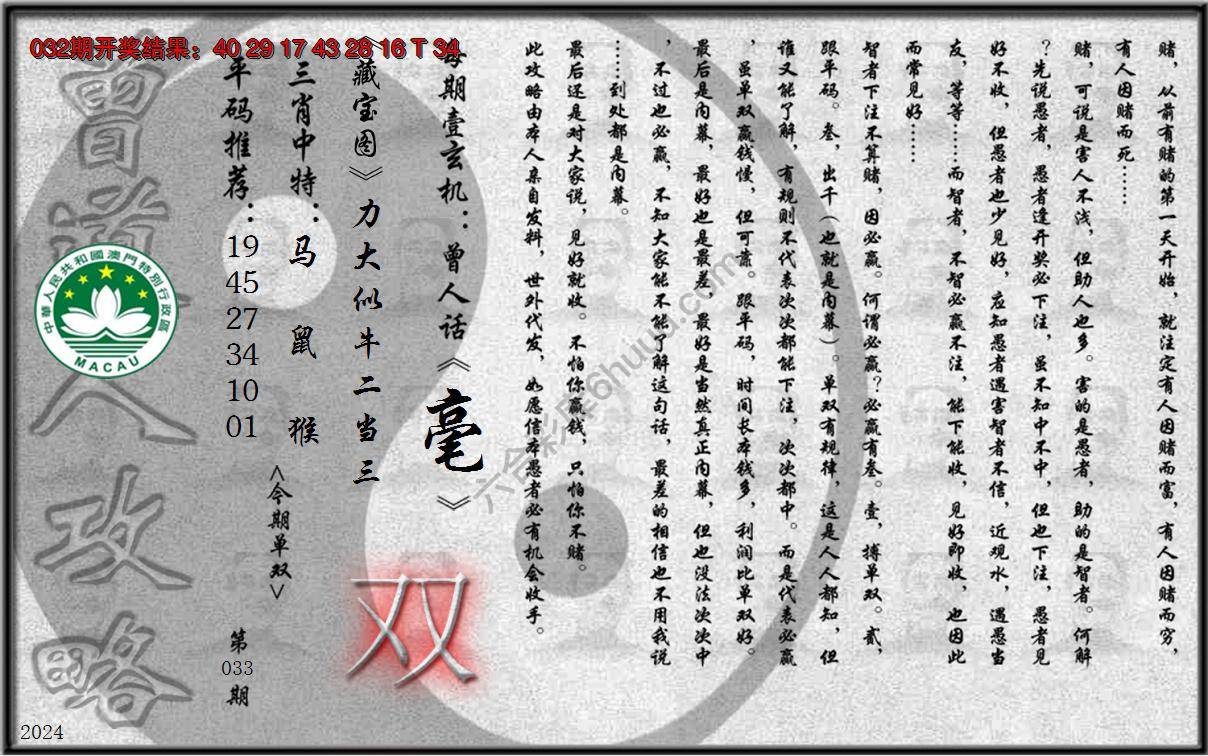 032期开奖结果：40 29 17 43 28 16 T 34
赌，从前有赌的第一天开始，就注定有人因赌而富，有人因赌而穷，
有人因赌而死……
赌，可说是害人不浅，但助人也多。害的是愚者，助的是智者。何解
？先说愚者，愚者逢开奖必下注，虽不知中不中，但也下注，愚者见
好不收，但愚者也少见好，应知愚者遇害智者不信，近观水，遇愚当
友，等等……而智者，不智必赢不注，能下能收，见好即收，也因此
而常见好……
智者下注不算赌，因必赢。何谓必赢？必赢有叁。壹，搏单双。贰，
跟平码。叁，出千（也就是内幕）。单双有规律，这是人人都知，但
谁又能了解，有规则不代表次次都能下注，次次都中。而是代表必赢
，虽单双赢钱慢，但可靠。跟平码，时间长本钱多，利润比单双好。
最后是内幕，最好也是最差，最好是当然真正内幕，但也没法次次中
，不过也必赢，不知大家能不能了解这句话，最差的相信也不用我说
……到处都是内幕。
最后还是对大家说，见好就收。不怕你赢钱，只怕你不赌。
此攻略由本人亲自发料，世外代发，如愿信本愚者必有机会收手。
每期壹玄机：曾人话《毫》
《藏宝图》力大似牛二当三
三肖中特：马 鼠 猴
平码推荐：19 45 27 34 10 01
<今期单双>
双
第033期
曾道人攻略
中華人民共和國澳門特別行政區
MACAU
六合彩库6huuu.com
2024